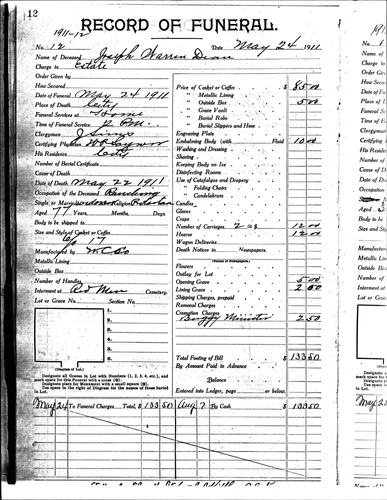 12
1911-12
RECORD OF FUNERAL.
No. 12 Date May 24 1911
Name of Deceased Joseph Warren Dean
Charge to Estate
Order Given by
How Secured
Date of Funeral May 24 1911
Place of Death City
Funeral Services at Home
Time of Funeral Service 2 P.M.
Clergyman J Sims
Certifying Physician
His Residence City
Number of Burial Certificate
Cause of Death
Date of Death May 22 1911
Occupation of the Deceased
Single or Married Widower Religion
Aged 77 Years, Months, Days.
Body to be shipped to
Size and Style of Casket or Coffin
6/0 17
Manufactured by M.C.Co
Metallic Lining
Outside Box
Number of Handles
Interment at Red Men Cemetery.
Lot or Grave No. Section No.
1.
2.
3.
4.
5.
6.
(Diagram of Lot.)
Designate all Graves in Lot with Numbers (1, 2, 3, 4, etc.), and
mark space for this Funeral with a cross (X).
Designate place for Monument with a small square (□).
Use space to the right of Diagram for the names of those buried
in Lot.
Price of Casket or Coffin $ 85 00
" Metallic Lining
" Outside Box 5 00
" Grave Vault
" Burial Robe
" Burial Slippers and Hose
Engraving Plate
Embalming Body (with Fluid 10 00
Washing and Dressing
Shaving
Keeping Body on Ice
Disinfecting Rooms
Use of Catafalque and Drapery
" Folding Chairs
" Candelabrum
Candles
Gloves
Crape
Number of Carriages 2 @ $ 12 00
Hearse 12 00
Wagon Deliveries
Death Notices in Newspapers.
(Names of Newspapers.)
Flowers
Outlay for Lot
Opening Grave 5 00
Lining Grave 2 00
Shipping Charges, prepaid
Removal Charges
Cremation Charges
Buggy Minister 2 50
Total Footing of Bill $ 133 50
By Amount Paid in Advance
Balance
Entered into Ledger, page or below.
May 24 To Funeral Charges Total, $ 133 50 Aug 7 By Cash $ 133 50